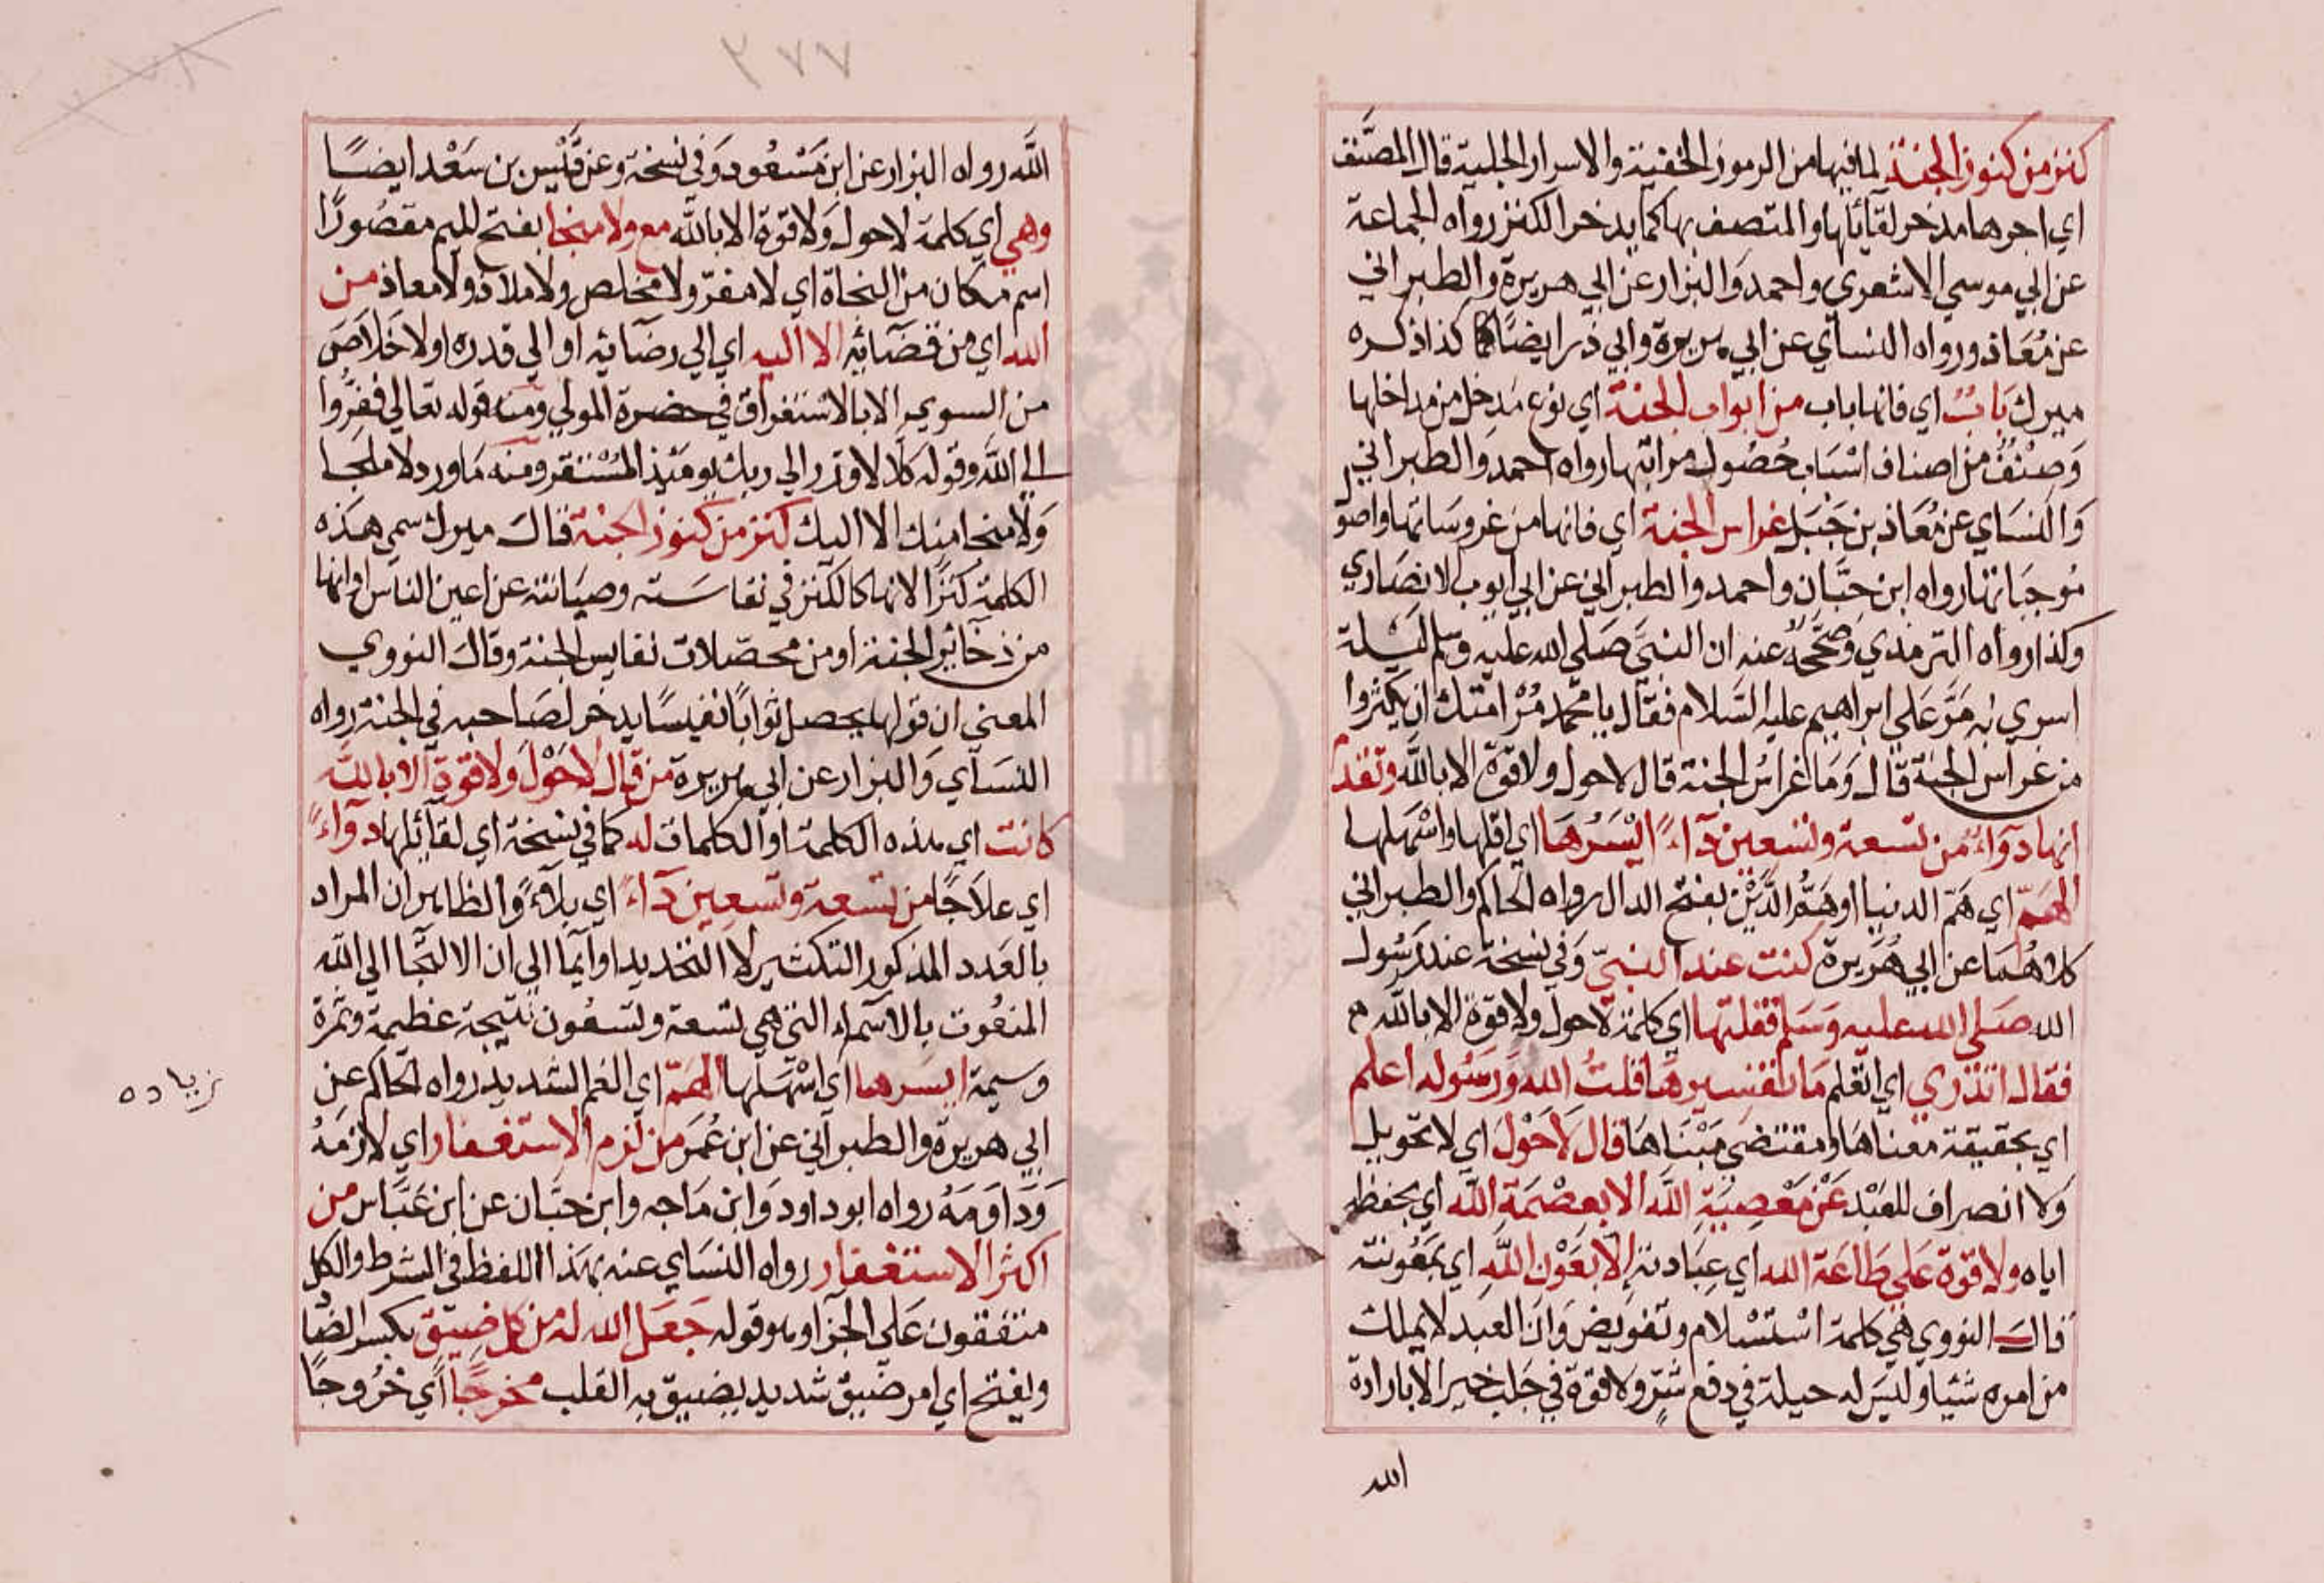 كنز من كنوز الجنة لما فيها من الرموز الخفية والاسرار الجلية قال المصنف
اي اجرها مدخر لقآئلها والمتصف بها كما يدخر الكنز رواه الجماعة
عن ابي موسي الاشعري واحمد والبزار عن ابي هريرة والطبراني
عن معاذ ورواه النسآي عن ابي هريرة وابي ذر ايضًا كذا ذكره
ميرك باب اي فانها باب من ابواب الجنة اي نوع مدخل من مداخلها
وصنف من اصناف اسباب حصول مراتبها رواه احمد والطبراني
والنساي عن معاذ بن جبل غراس الجنة اي فانها من غروساتها واصو
موجباتها رواه ابن حبان واحمد والطبراني عن ابي ايوب الانصاري
وكذا رواه الترمذي وصححه عنه ان النبي صلي الله عليه وسلم ليلة
اسري به مر علي ابراهيم عليه السلام فقال يا محمد مر امتك ان يكثروا
من غراس الجنة قال وما غراس الجنة قال لا حول ولا قوة الا بالله وتقدم
انها دوآء من تسعة وتسعين دآءً ايسرها اي اقلها واسهلها
الهم اي هم الدنيا او هم الدين بفتح الدال رواه الحاكم والطبراني
كلاهما عن ابي هريرة كنت عند النبي وفي نسخة عند رسول
الله صلي الله عليه وسلم فقلتها اي كلمة لا حول ولا قوة الا بالله م
فقال اتدري اي اتعلم ما تفسيرها قلت الله ورسوله اعلم
اي بحقيقة معناها ومقتضي مبناها قال لا حول اي لا تحويل
ولا انصراف للعبد عن معصية الله الا بعصمة الله اي بحفظه
اياه ولا قوة علي طاعة الله اي عبادته الا بعون الله اي بمعونته
قال النووي هي كلمة استسلام وتفويض وان العبد لا يملك
من امره شيا وليس له حيلة في دفع شر ولا قوة في جلب خير الا بارادة
الله
٢٧٧
الله رواه البزار عن ابن مسعود وفي نسخة وعن قيس بن سعد ايضًا
وهي اي كلمة لا حول ولا قوة الا بالله مع ولا منجا بفتح الميم مقصورًا
اسم مكان من النجاة اي لا مفر ولا مخلص ولا ملاذ ولا معاذ من
الله اي من قضآئه الا اليه اي الي رضآئه او الي قدره اولا خلاص
من السوي الا بالاستغراق في حضرة المولي ومنه قوله تعالي ففروا
الي الله وقوله كلا لا وزر الي ربك يومئذ المستقر ومنه ما ورد لا ملجا
ولا منجا منك الا اليك كنز من كنوز الجنة قال ميرك سمي هذه
الكلمة كنزًا لانها كالكنز في نفاسته وصيانته عن اعين الناس او انها
من ذخآئر الجنة او من محصلات نفايس الجنة وقال النووي
المعني ان قولها يحصل ثوابًا نفيسًا يدخر لصاحبه في الجنة رواه
النسآي والبزار عن ابي هريرة من قال لا حول ولا قوة الا بالله
كانت اي هذه الكلمة او الكلمات له كما في نسخة اي لقآئلها دوآءً
اي علاجًا من تسعة وتسعين دآءً اي بلآءً والظاهر ان المراد
بالعدد المذكور التكثير لا التحديد او ايما الي ان الالتجا الي الله
المنعوت بالاسمآء التي هي تسعة وتسعون نتيجة عظيمة وثمرة
وسيمة ايسرها اي اسهلها الهم اي الغم الشديد رواه الحاكم عن
ابي هريرة والطبراني عن ابن عمر من لزم الاستغفار اي لازمه
وداومه رواه ابو داود وابن ماجه وابن حبان عن ابن عباس من
اكثر الاستغفار رواه النساي عنه بهذا اللفظ في الشرط والكل
متفقون علي الجزآ وهو قوله جعل الله له من كل ضيق بكسر الضا
وبفتح اي امر ضيق شديد يضيق به القلب مخرجًا اي خروجًا
زياده